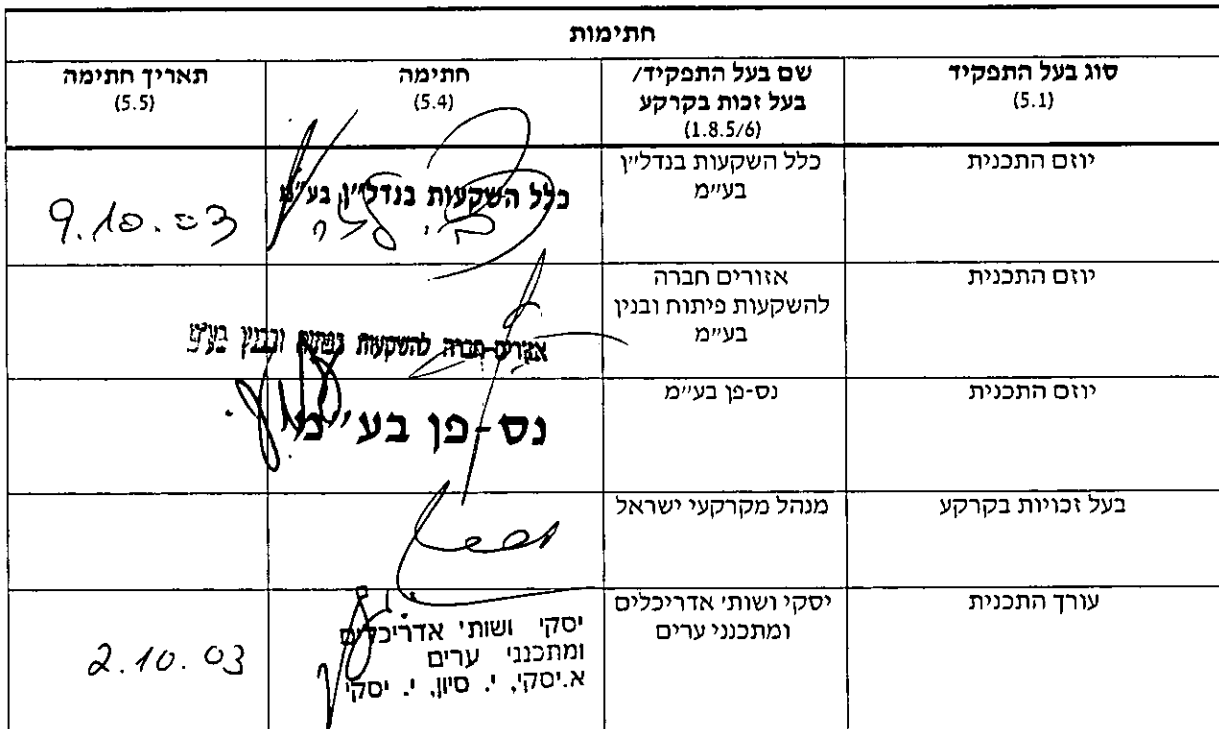 חתימות
סוג בעל התפקיד
(5.1)
שם בעל התפקיד/
בעל זכות בקרקע
(1.8.5/6)
חתימה
(5.4)
תאריך חתימה
(5.5)
יוזם התכנית
כלל השקעות בנדל״ן
בע״מ
כלל השקעות בנדל״ן בע״מ
9.10.03
יוזם התכנית
אזורים חברה
להשקעות פיתוח ובנין
בע״מ
אזורים-חברה להשקעות בפתוח ובבנין בע״מ
יוזם התכנית
נס-פן בע״מ
נס-פן בע״מ
בעל זכויות בקרקע
מנהל מקרקעי ישראל
עורך התכנית
יסקי ושות׳ אדריכלים
ומתכנני ערים
יסקי ושות׳ אדריכלים
ומתכנני ערים
א.יסקי, י. סיון, י. יסקי
2.10.03